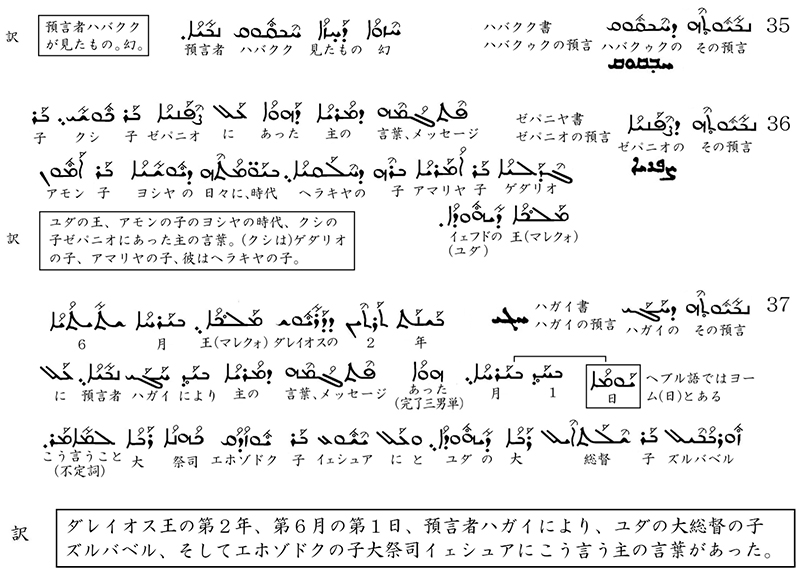 35 ܢܒܝܘܬܗ ܕܚܒܩܘܩ
その預言 ハバクゥクの
ハバクク書
ハバクゥクの預言
ܚܒܩܘܩ
ܚܙܘܐ ܕܚܙܐ ܚܒܩܘܩ ܢܒܝܐ.
幻 見たもの ハバクク 預言者
訳 預言者ハバクク
が見たもの。幻。
36 ܢܒܝܘܬܗ ܕܨܦܢܝܐ
その預言 ゼパニオの
ゼパニヤ書
ゼパニオの預言
ܨܦܢܝܐ
ܦܬܓܡܗ ܕܡܪܝܐ ܕܗܘܐ ܥܠ ܨܦܢܝܐ ܒܪ ܟܘܫܝ. ܒܪ
言葉、メッセージ 主の あった に ゼパニオ 子 クシ 子
ܓܕܠܝܐ ܒܪ ܐܡܪܝܐ ܒܪܗ ܕܚܠܩܝܐ. ܒܝܘܡܬܗ ܕܝܘܫܝܐ ܒܪ ܐܡܘܢ
ゲダリオ 子 アマリヤ 子 ヘラキヤの 日々に、時代 ヨシヤの 子 アモン
ܡܠܟܐ ܕܝܗܘܕܐ.
王(マレクォ) イェフドの
(ユダ)
訳 ユダの王、アモンの子のヨシヤの時代、クシの
子ゼパニオにあった主の言葉。(クシは)ゲダリオ
の子、アマリヤの子、彼はヘラキヤの子。
37 ܢܒܝܘܬܗ ܕܚܓܝ
その預言 ハガイの
ハガイ書
ハガイの預言
ܚܓܝ
ܒܫܢܬ ܬܪܬܝܢ ܕܕܪܝܘܫ ܡܠܟܐ. ܒܝܪܚܐ ܫܬܝܬܝܐ
年 2 ダレイオスの 王(マレクォ) 月 6
ヘブル語ではヨー
ム(日)とある
ܝܘܡܐ ܒܚܕ ܒܝܪܚܐ. ܗܘܐ ܦܬܓܡܗ ܕܡܪܝܐ ܒܝܕ ܚܓܝ ܢܒܝܐ. ܥܠ
日 1 月 あった 言葉、メッセージ 主の により ハガイ 預言者 に
(完了三男単)
ܙܘܪܒܒܝܠ ܒܪ ܫܠܬܐܝܠ ܪܒܐ ܕܝܗܘܕܐ. ܘܥܠ ܝܫܘܥ ܒܪ ܝܘܙܕܩ ܟܗܢܐ ܪܒܐ ܠܡܐܡܪ.
ズルバベル 子 総督 大 ユダの にと イェシュア 子 エホゾドク 祭司 大 こう言うこと
(不定詞)
訳 ダレイオス王の第2年、第6月の第1日、預言者ハガイにより、ユダの大総督の子
ズルバベル、そしてエホゾドクの子大祭司イェシュアにこう言う主の言葉があった。